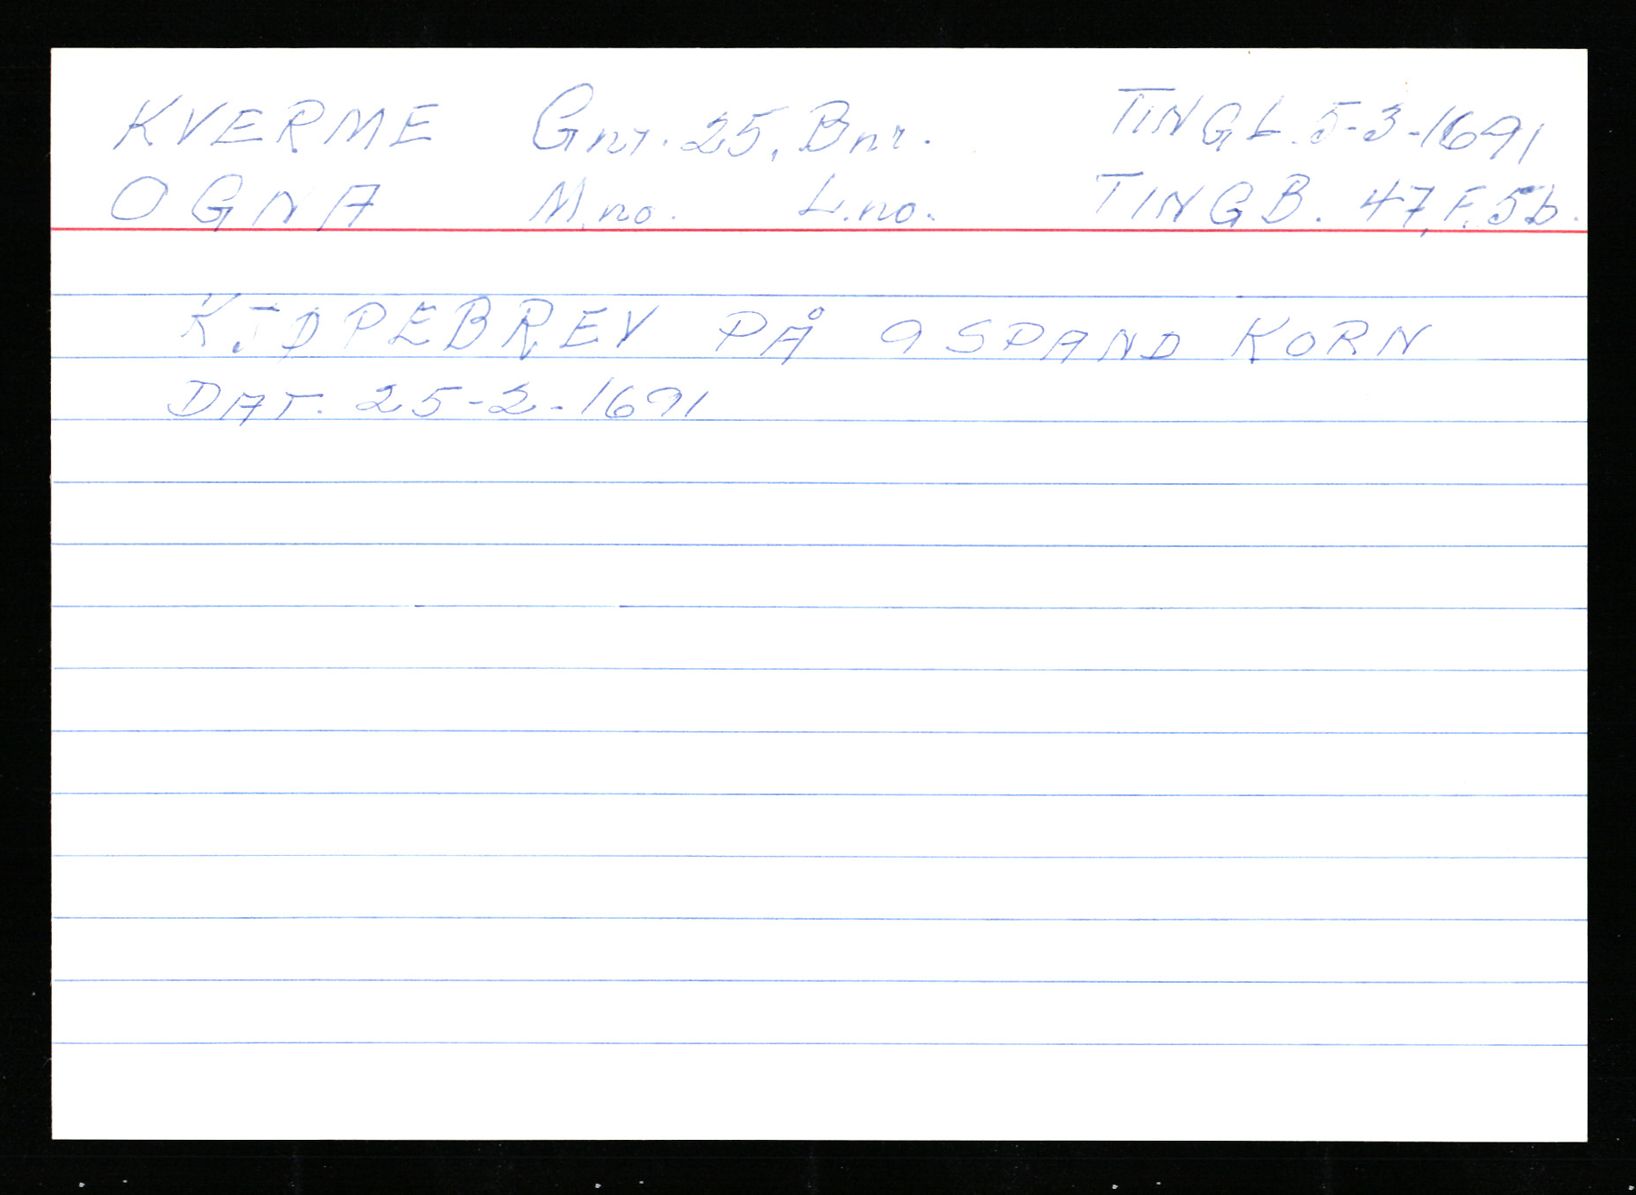 KVERME Gnr. 25, Bnr. TINGL. 5-3-1691
OGNA M.no. L.no. TINGB. 47, F. 5b.
KJØPEBREV PÅ 9 SPAND KORN
DAT. 25-2-1691